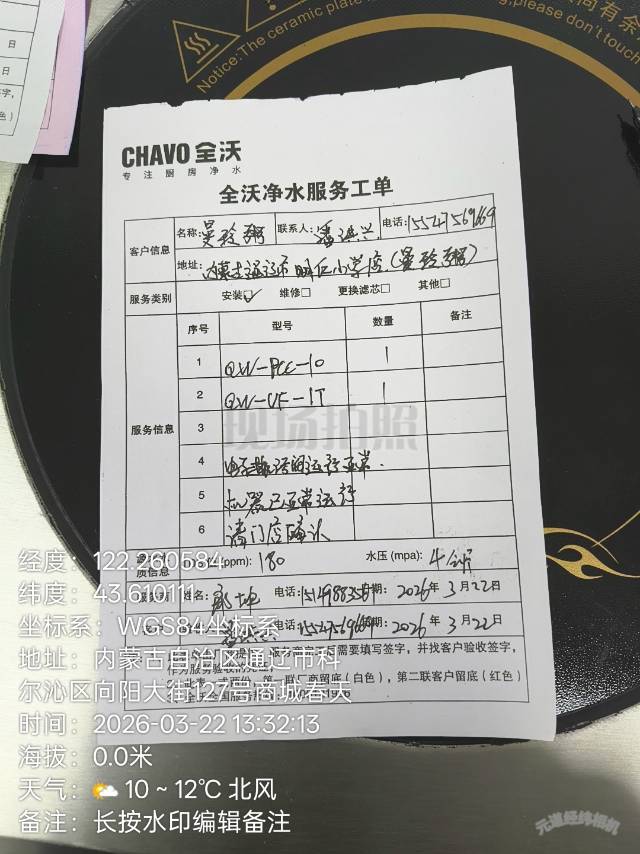 Notice:The ceramic plate
please don't touch
CHAVO 全沃
专注厨房净水
全沃净水服务工单
客户信息
名称: 曼玲粥
联系人:
电话: 15547569669
地址: 内蒙古通辽市明仁小学店(曼玲粥)
服务类别
安装☑ 维修□ 更换滤芯□ 其他□
服务信息
序号 型号 数量 备注
1 QW-PCC-10 1
2 QW-UF-1T 1
3
4 运行正常.
5 机器已正常运行
6 请门店确认
现场拍照
(ppm): 180 水压 (mpa): 4公斤
质信息
姓名: 电话: 日期: 2026年 3月22日
电话: 15547569669 2026年 3月22日
需要填写签字，并找客户验收签字，
第一联厂商留底（白色），第二联客户留底（红色）
经度：122.260584
纬度：43.610111
坐标系：WGS84坐标系
地址：内蒙古自治区通辽市科
尔沁区向阳大街127号商城春天
时间：2026-03-22 13:32:13
海拔：0.0米
天气：10 ~ 12℃ 北风
备注：长按水印编辑备注
元道经纬相机